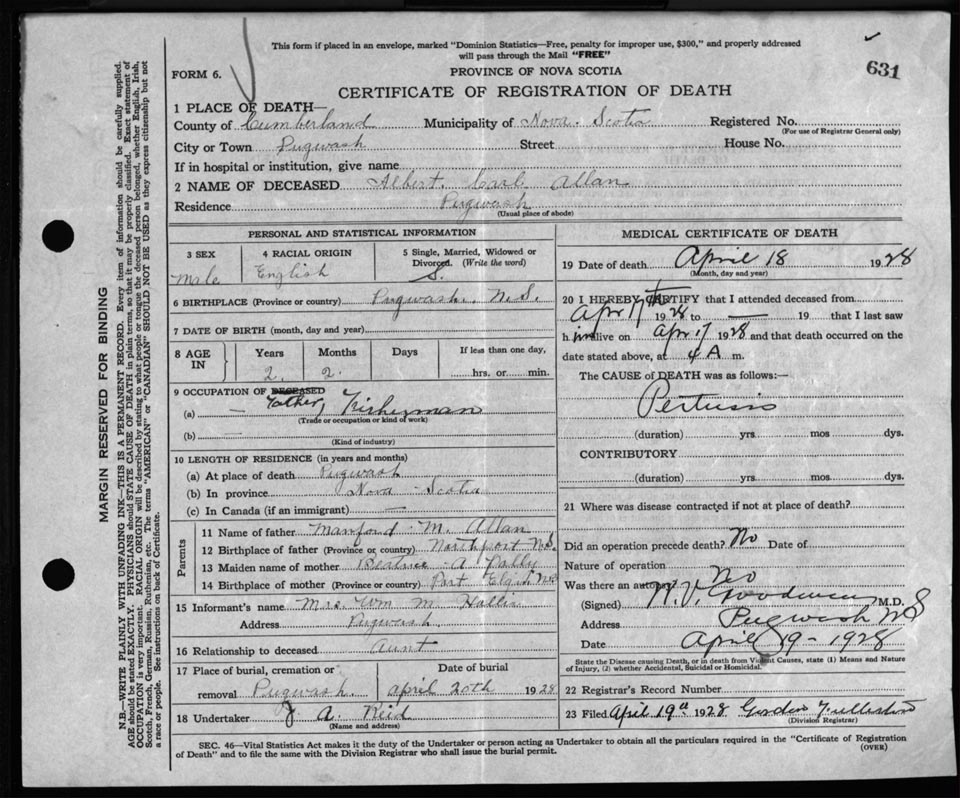 This form if placed in an envelope, marked "Dominion Statistics—Free, penalty for improper use, $300," and properly addressed
will pass through the Mail "FREE"
631
FORM 6.
PROVINCE OF NOVA SCOTIA
CERTIFICATE OF REGISTRATION OF DEATH
1 PLACE OF DEATH—
County of Cumberland Municipality of Nova Scotia Registered No.
(For use of Registrar General only)
City or Town Pugwash Street House No.
If in hospital or institution, give name
2 NAME OF DECEASED Albert Carl Allan
Residence Pugwash
(Usual place of abode)
PERSONAL AND STATISTICAL INFORMATION
3 SEX Male
4 RACIAL ORIGIN English
5 Single, Married, Widowed or
Divorced. (Write the word) S.
6 BIRTHPLACE (Province or country) Pugwash. N.S.
7 DATE OF BIRTH (month, day and year)
8 AGE IN Years Months Days If less than one day,
2. 2. hrs. or min.
9 OCCUPATION OF DECEASED
Father,
(a) — Fisherman
(Trade or occupation or kind of work)
(b)
(Kind of industry)
10 LENGTH OF RESIDENCE (in years and months)
(a) At place of death Pugwash
(b) In province Nova Scotia
(c) In Canada (if an immigrant) —
Parents
11 Name of father Manford M. Allan
12 Birthplace of father (Province or country) Northport N.S.
13 Maiden name of mother Beatrice A.
14 Birthplace of mother (Province or country) Port Elgin N.B
15 Informant's name Mrs. Wm M.
Address Pugwash.
16 Relationship to deceased Aunt
17 Place of burial, cremation or removal Pugwash.
Date of burial April 20th 1928
18 Undertaker J A. Reid
(Name and address)
MEDICAL CERTIFICATE OF DEATH
19 Date of death April 18 1928
(Month, day and year)
20 I HEREBY CERTIFY that I attended deceased from
Apr 17th 1928 to — 19 that I last saw
him alive on Apr 17 1928 and that death occurred on the
date stated above, at 4 A m.
The CAUSE of DEATH was as follows:—
Pertusis
(duration) yrs. mos dys.
CONTRIBUTORY
(duration) yrs. mos. dys.
21 Where was disease contracted if not at place of death?
Did an operation precede death? No Date of
Nature of operation
Was there an autopsy? No
(Signed) Goodwin M.D.
Address Pugwash NS
Date April 19 - 1928
State the Disease causing Death, or in death from Violent Causes, state (1) Means and Nature
of Injury, (2) whether Accidental, Suicidal or Homicidal.
22 Registrar's Record Number
23 Filed April 19th 1928 Gordon
(Division Registrar)
SEC. 46—Vital Statistics Act makes it the duty of the Undertaker or person acting as Undertaker to obtain all the particulars required in the "Certificate of Registration
of Death" and to file the same with the Division Registrar who shall issue the burial permit.
(OVER)
MARGIN RESERVED FOR BINDING
N.B.—WRITE PLAINLY WITH UNFADING INK—THIS IS A PERMANENT RECORD. Every item of information should be carefully supplied.
AGE should be stated EXACTLY. PHYSICIANS should STATE CAUSE OF DEATH in plain terms, so that it may be properly classified. Exact statement of
OCCUPATION is very important. RACIAL ORIGIN will be described by stating to what people or tongue the deceased person belonged, whether English, Irish,
Scotch, French, German, Russian, Ruthenian, etc. The terms "AMERICAN" or "CANADIAN" SHOULD NOT BE USED as they express citizenship but not
a race or people. See instructions on back of Certificate.